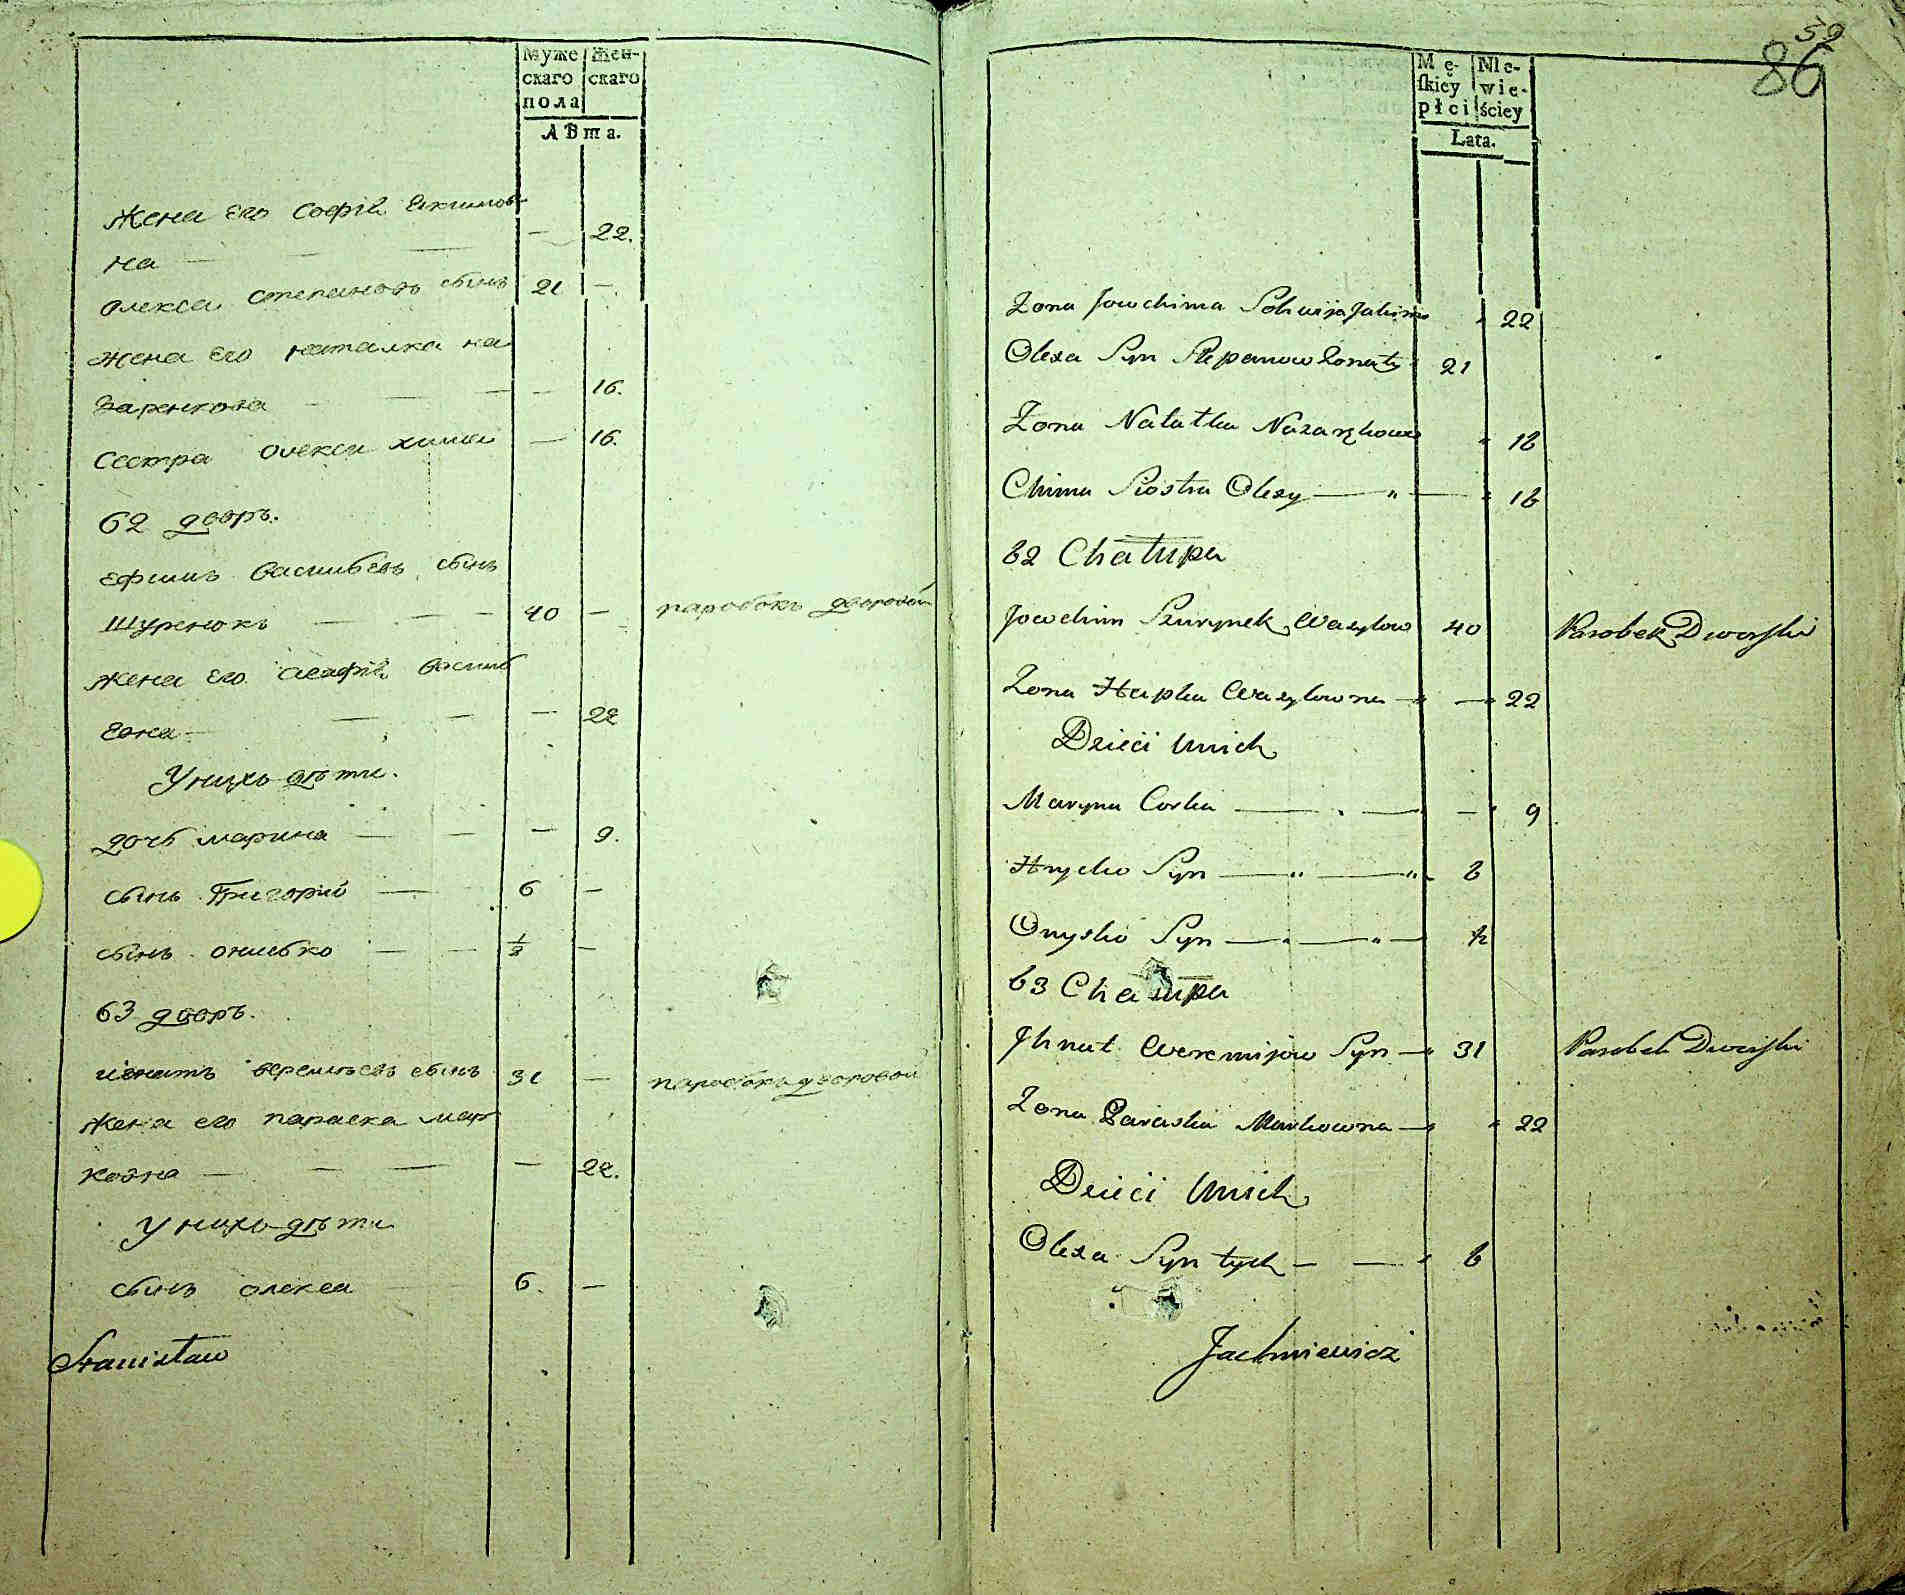 Муже
скаго
пола
Жен-
скаго
лѣта.
жена его софiя якимов
на — — — 22.
олекса степановъ сынъ 21 —
жена его наталка на
заренкова — — — 16.
сестра олекси химя — 16.
62 дворъ.
ефимъ васильевъ сынъ
шуренокъ — — 40 — паробокъ дворовой
жена его агафiя васил
евна — — — — 22
У нихъ дѣти.
дочь марина — — — 9.
сынъ Григорiй — 6 —
сынъ онисько — — ½ —
63 дворъ.
игнатъ веремѣевъ сынъ 31 — паробокъ дворовой
жена его параска мар
ковна — — — — 22.
У нихъ дѣти
сынъ олекса 6. —
Stanisław
52
86
Mę-
skiey
płci
Nie-
wie-
ściey
Lata.
Zona Jowchima Sohwija Jakimo " 22
Olexa Syn Stepanow Zonaty 21
Zona Natałka Nazarkowa " 16
Chima Siostra Olexy — " — " 16
62 Chałupa
Jowchim Szurynek Wasylow 40 Parobek Dworski
Zona Hapka Wasylowna — — 22
Dzieci Unich
Maryna Corka — " — — " 9
Hryćko Syn — " — " 6
Onysko Syn — " — " — ½
63 Chałupa
Ihnat Weremijow Syn — 31 Parobek Dworski
Zona Paraska Markowna — " 22
Dzieci Unich
Olexa Syn tych — — " 6
Jachniewicz